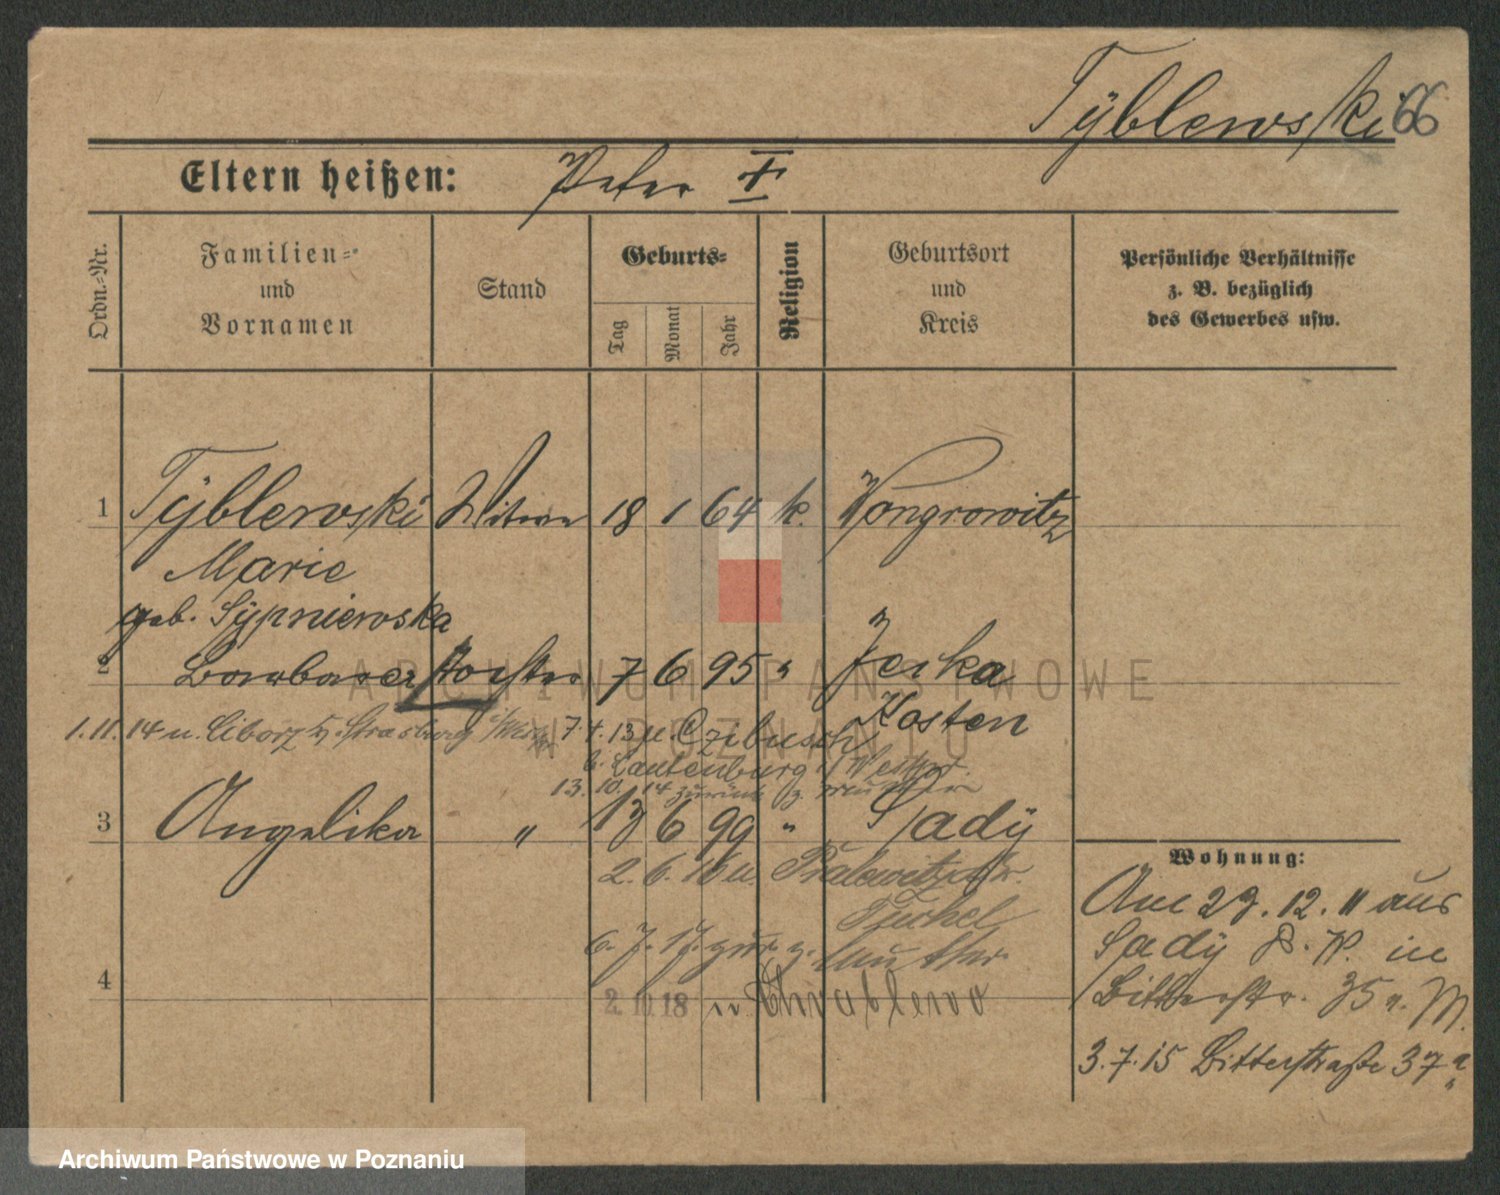 Tÿblewski 66
Eltern heißen: Peter †
Ordn.-Nr.
Familien= und Vornamen
Stand
Geburts=
Tag
Monat
Jahr
Religion
Geburtsort und Kreis
Persönliche Verhältnisse
z. B. bezüglich
des Gewerbes usw.
1 Tÿblewski Witwe 18 1 64 k. Wongrowitz
Marie
geb. Sÿpniewska
2 Barbara Tochter 7 6 95 " Jerka
Kosten
1.11.14 n. Ciborz Strasburg 7.4.13 n. Czibusch
b. Lautenburg i/Westpr.
13. 10. 14 zurück z. Mutter
3 Angelika " 13 6 99 " Sadÿ
2. 6. 16 n.
Tuchel
6. 7. 17. zur z. Mutter
4
2. 10 18 n Chrablewo
Wohnung:
Am 29. 12. 11 aus
Sadÿ P. W. in
Bitterstr. 35 v. M.
3. 7. 15 Bitterstraße 37a
ARCHIWUM PAŃSTWOWE
W POZNANIU
Archiwum Państwowe w Poznaniu